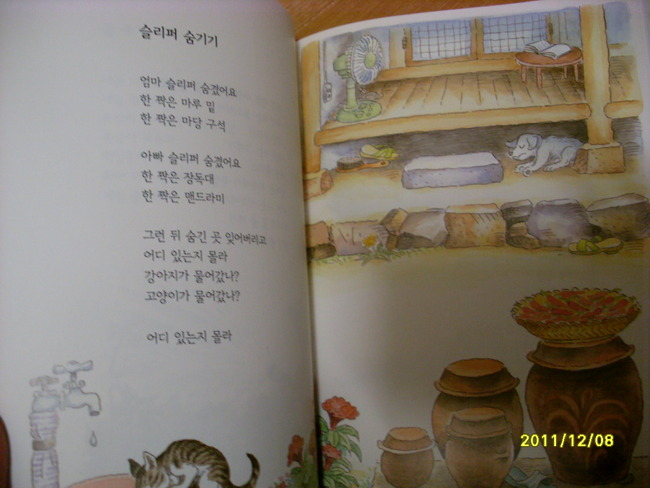 슬리퍼 숨기기
엄마 슬리퍼 숨겼어요
한 짝은 마루 밑
한 짝은 마당 구석
아빠 슬리퍼 숨겼어요
한 짝은 장독대
한 짝은 맨드라미
그런 뒤 숨긴 곳 잊어버리고
어디 있는지 몰라
강아지가 물어갔나?
고양이가 물어갔나?
어디 있는지 몰라
2011/12/08